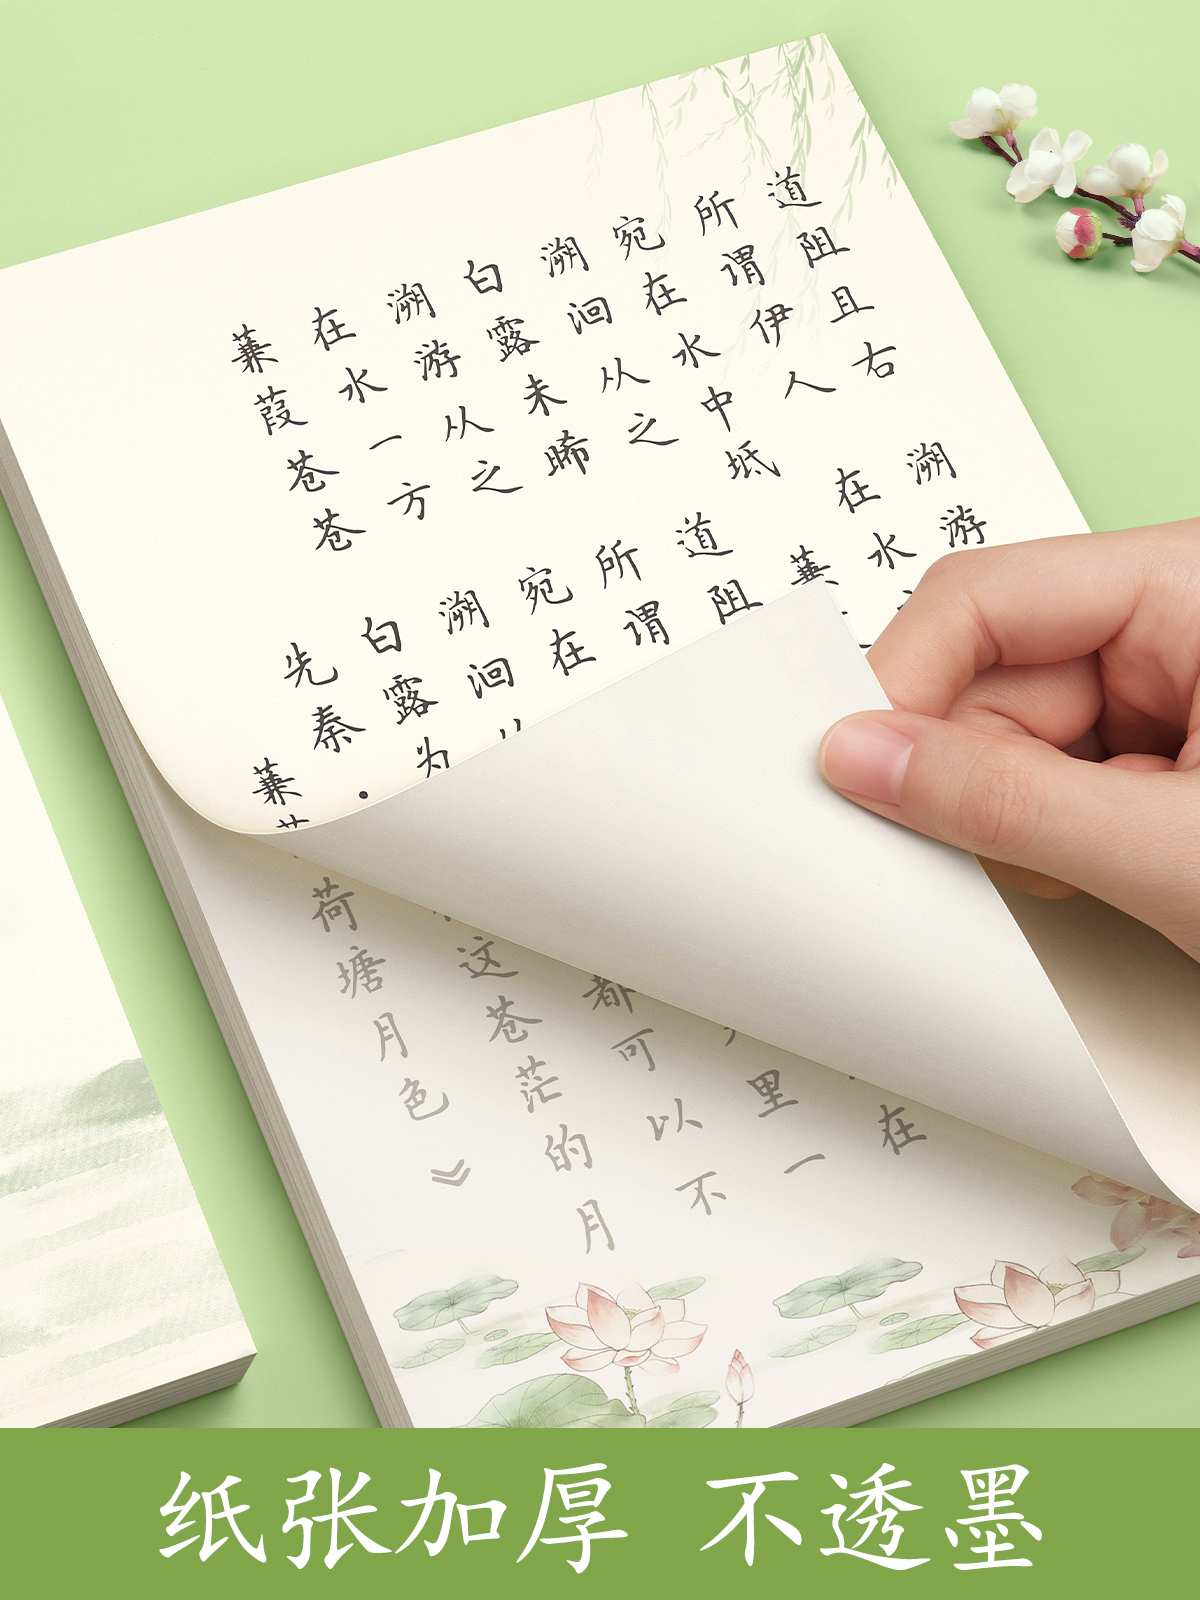 蒹葭苍苍
在水一方
溯游从之
白露未晞
溯洄从之
宛在水中坻
所谓伊人
道阻且右
蒹葭
先秦·
白露为
溯洄
宛在
所谓
道阻
蒹
在水
溯游
荷塘月色》
这苍茫的月
都可以不
里一
在
纸张加厚 不透墨